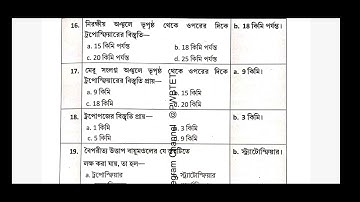 16. নিরক্ষীয় অঞ্চলে ভূপৃষ্ঠ থেকে ওপরের দিকে b. 18 কিমি পর্যন্ত।
ট্রপোস্ফিয়ারের বিস্তৃতি—
a. 15 কিমি পর্যন্ত b. 18 কিমি পর্যন্ত
c. 20 কিমি পর্যন্ত d. 25 কিমি পর্যন্ত
17. মেরু সংলগ্ন অঞ্চলে ভূপৃষ্ঠ থেকে ওপরের দিকে a. 9 কিমি।
ট্রপোস্ফিয়ারের বিস্তৃতি প্রায়—
a. 9 কিমি b. 15 কিমি
c. 18 কিমি d. 20 কিমি
18. ট্রপোপজের বিস্তৃতি প্রায়— b. 3 কিমি।
a. 1 কিমি 3 কিমি
c. 5 কিমি 9 কিমি
19. বৈপরীত্য উত্তাপ বায়ুমণ্ডলের যে স্তরটিতে b. স্ট্র্যাটোস্ফিয়ার।
লক্ষ করা যায়, তা হল—
a. ট্রপোস্ফিয়ার স্ট্র্যাটোস্ফিয়ার
gram Channel @PWBTET